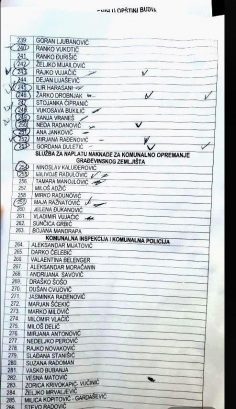 U OPŠTINI BUDVA
239. GORAN LJUBANOVIĆ
240. RANKO VUKOTIĆ
241. RANKO ĐURIŠIĆ
242. ŽELJKO MIJAILOVIĆ
243. RAJKO VUJAČIĆ
244. DEJAN LIJAŠEVIĆ
245. ILIR HARASANI
246. ŽARKO DROBNJAK
247. STOJANKA ČIPRANIĆ
248. VUKOSAVA BUKILIĆ
249. SANJA VRANIEŠ
250. NEĐA RAĐANOVIĆ
251. ANA JANKOVIĆ
252. MIRJANA RAĐENOVIĆ
253. GORDANA ĐULETIĆ
SLUŽBA ZA NAPLATU NAKNADE ZA KOMUNALNO OPREMANJE
GRAĐEVINSKOG ZEMLJIŠTA
254. NINOSLAV KALUĐEROVIĆ
255. MILIVOJE RADULOVIĆ
256. TAMARA MANOJLOVIĆ
257. MILOŠ ADŽIĆ
258. MIRKO RAĐUNOVIĆ
259. MAJA RAŽNATOVIĆ
260. JELENA ĐUKANOVIĆ
261. VLADIMIR VUJAČIĆ
262. SUNČICA GRBIĆ
263. BOJANA MANDRAPA
KOMUNALNA INSPEKCIJA I KOMUNALNA POLICIJA
264. ALEKSANDAR MIJATOVIĆ
265. DARKO ČELEBIĆ
266. VALAENTINA BELENGER
267. ALEKSANDAR MORAČANIN
268. ANDRIJANA SAVOVIĆ
269. DRAŠKO ŠOŠO
270. DUŠAN CVIJOVIĆ
271. JASMINKA RAĐENOVIĆ
272. MARJAN ŠČEKIĆ
273. MARKO MILOVIĆ
274. MILOMIR VLAČIĆ
275. MILOŠ DELIĆ
276. MIRJANA ANTONOVIĆ
277. NEĐELJKO PEROVIĆ
278. RAJKO NOVAKOVIĆ
279. SLAĐANA STANIŠIĆ
280. SUZANA RADOMAN
281. VASKO BUBANJA
282. VESNA MATOVIĆ
283. ZORICA KRIVOKAPIĆ- VUČINIĆ
284. ŽELJKO MRVALJEVIĆ
285. MILICA KOPITOVIĆ - GARDAŠEVIĆ
286. STEVO RADOVIĆ